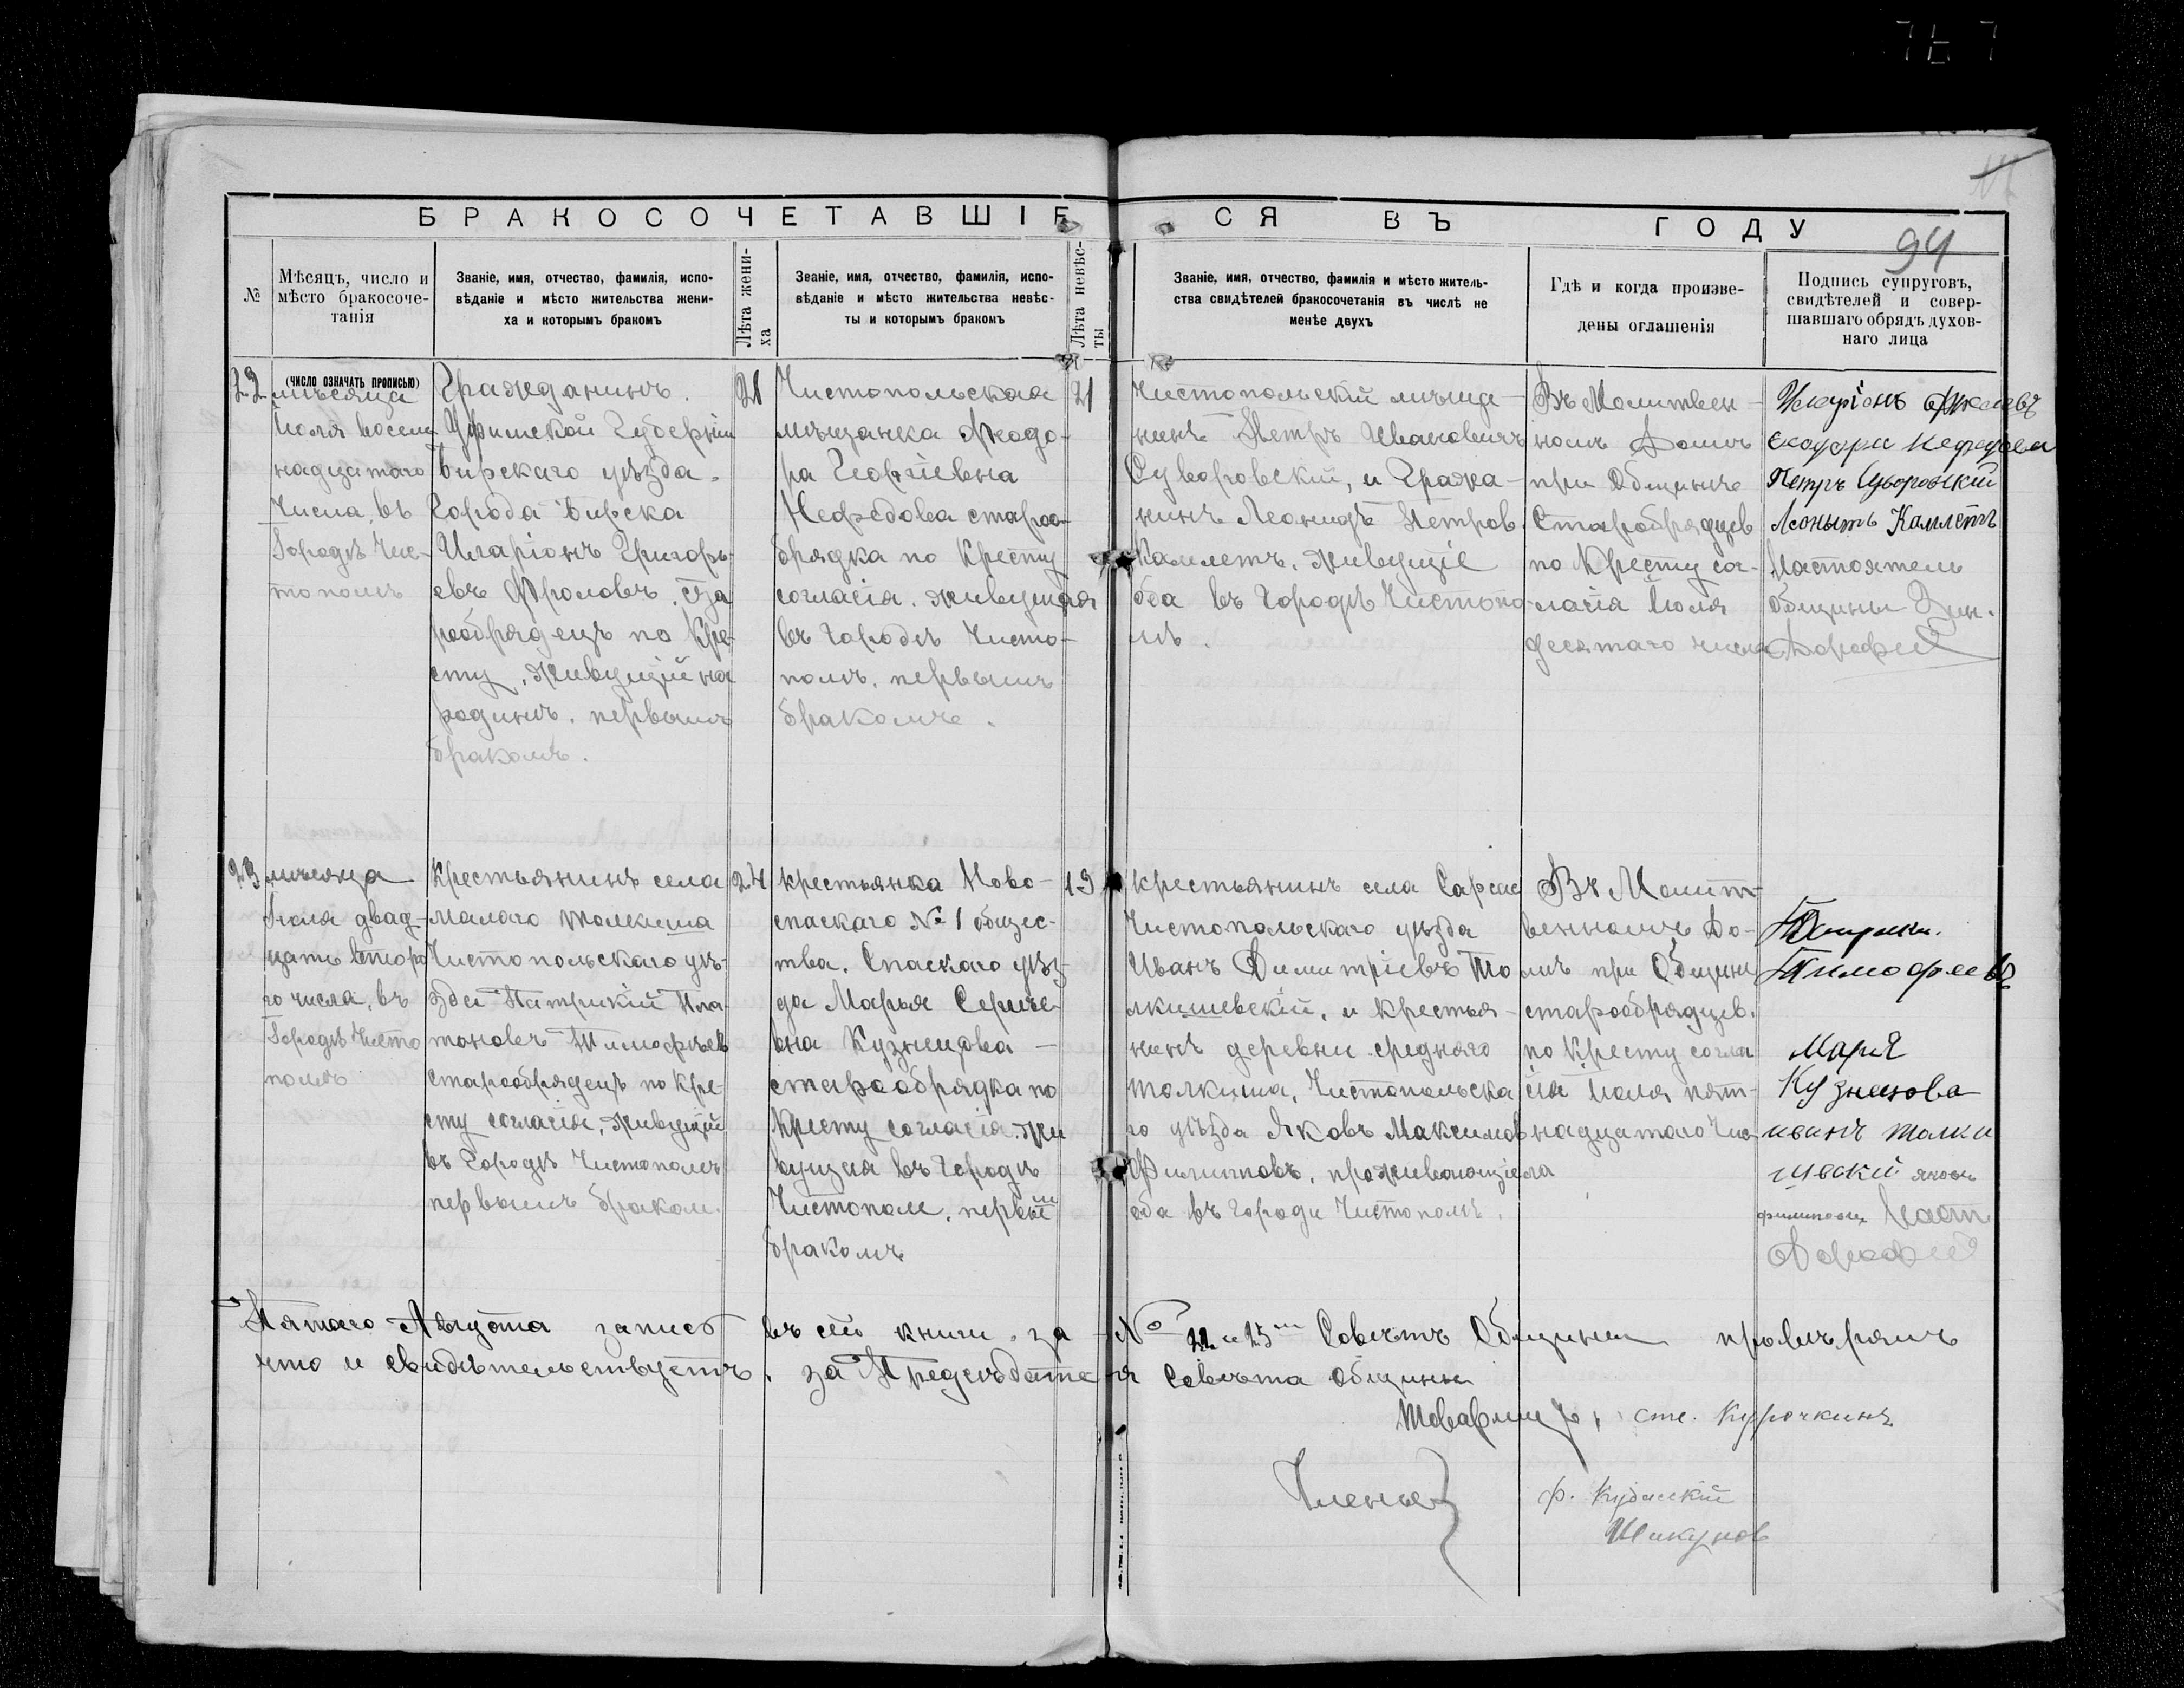 БРАКОСОЧЕТАВШІЕСЯ ВЪ ГОДУ
94
№
Мѣсяцъ, число и
мѣсто бракосоче-
танія
(число означать прописью)
Званіе, имя, отчество, фамилія, испо-
вѣданіе и мѣсто жительства жени-
ха и которымъ бракомъ
Лѣта жени-
ха
Званіе, имя, отчество, фамилія, испо-
вѣданіе и мѣсто жительства невѣс-
ты и которымъ бракомъ
Лѣта невѣс-
ты
Званіе, имя, отчество, фамилія и мѣсто житель-
ства свидѣтелей бракосочетанія въ числѣ не
менѣе двухъ
Гдѣ и когда произве-
дены оглашенія
Подпись супруговъ,
свидѣтелей и совер-
шавшаго обрядъ духов-
наго лица
22
мѣсяца
Іюля восем
надцатаго
Числа, въ
Городѣ Чис-
тополѣ
Гражданинъ.
Уфимской Губерніи
Бирскаго уѣзда.
Города Бирска
Иларіонъ Григорь-
евъ Фроловъ, Ста
рообрядецъ по Кре-
сту, живущій на
родинѣ. первымъ
бракомъ.
21
Чистопольская
мѣщанка Феодо-
ра Георгіевна
Нефедова староо-
брядка по Кресту
согласія. живущая
въ городѣ Чисто-
полѣ. первымъ
бракомъ.
21
Чистопольскій мѣща-
нинъ Петръ Ивановичъ
Суворовскій, и Гражда-
нинъ Леонидъ Петров.
Камлетъ. живущіе
оба въ Городѣ Чистопо-
лѣ.
Въ Молитвен-
номъ Домѣ
при Общинѣ
Старобрядцев
по Кресту со-
гласія Іюля
десятаго числа
Иларіонъ
Нефедова
Петръ Суворовский
Леонытъ Камлетъ
Настоятель
общины Зин.
Дорофей
23
мѣсяца
Іюля двад-
цать второ
го числа, въ
Городѣ Чисто
полѣ
Крестьянинъ села
Малаго Толкиша
Чистопольскаго уѣ-
зда Патрикій Пла-
тоновъ Тимофѣев
старообрядецъ по Кре-
сту согласія, живущій
въ Городѣ Чистополѣ
первымъ браком.
24
крестьянка Ново-
спаскаго № 1 общес-
тва. Спаскаго уѣз-
да Марья Сергее-
вна Кузнецова —
старообрядка по
Кресту согласія. жи
вущая въ Городѣ
Чистополе, первым
бракомъ
19
крестьянинъ села Сарсас
Чистопольскаго уѣзда
Иванъ Димитріевъ То
лкишевскій, и крестья-
нинъ деревни средняго
толкиша, Чистопольска
го уѣзда Яковъ Максимов
Филиповъ, проживающіе
оба въ городи Чистополѣ.
Въ Молит-
венномъ До-
мѣ при Общине
старообрядцев.
по Кресту согла
сія Іюля пят-
надцатаго Чис
ла
Тимофеевъ
Мария
Кузнецова
иванъ толки
шевский яковъ
филиповъ Наст
Дорофей
Пятаго Августа запись въ сей книги. за № 22 и 23м Совѣтъ Общины провѣрялъ
что и свидѣтельствуетъ. за Председателя Совѣта общины
Товарищъ, сте. Курочкинъ
Члены
Шикунов